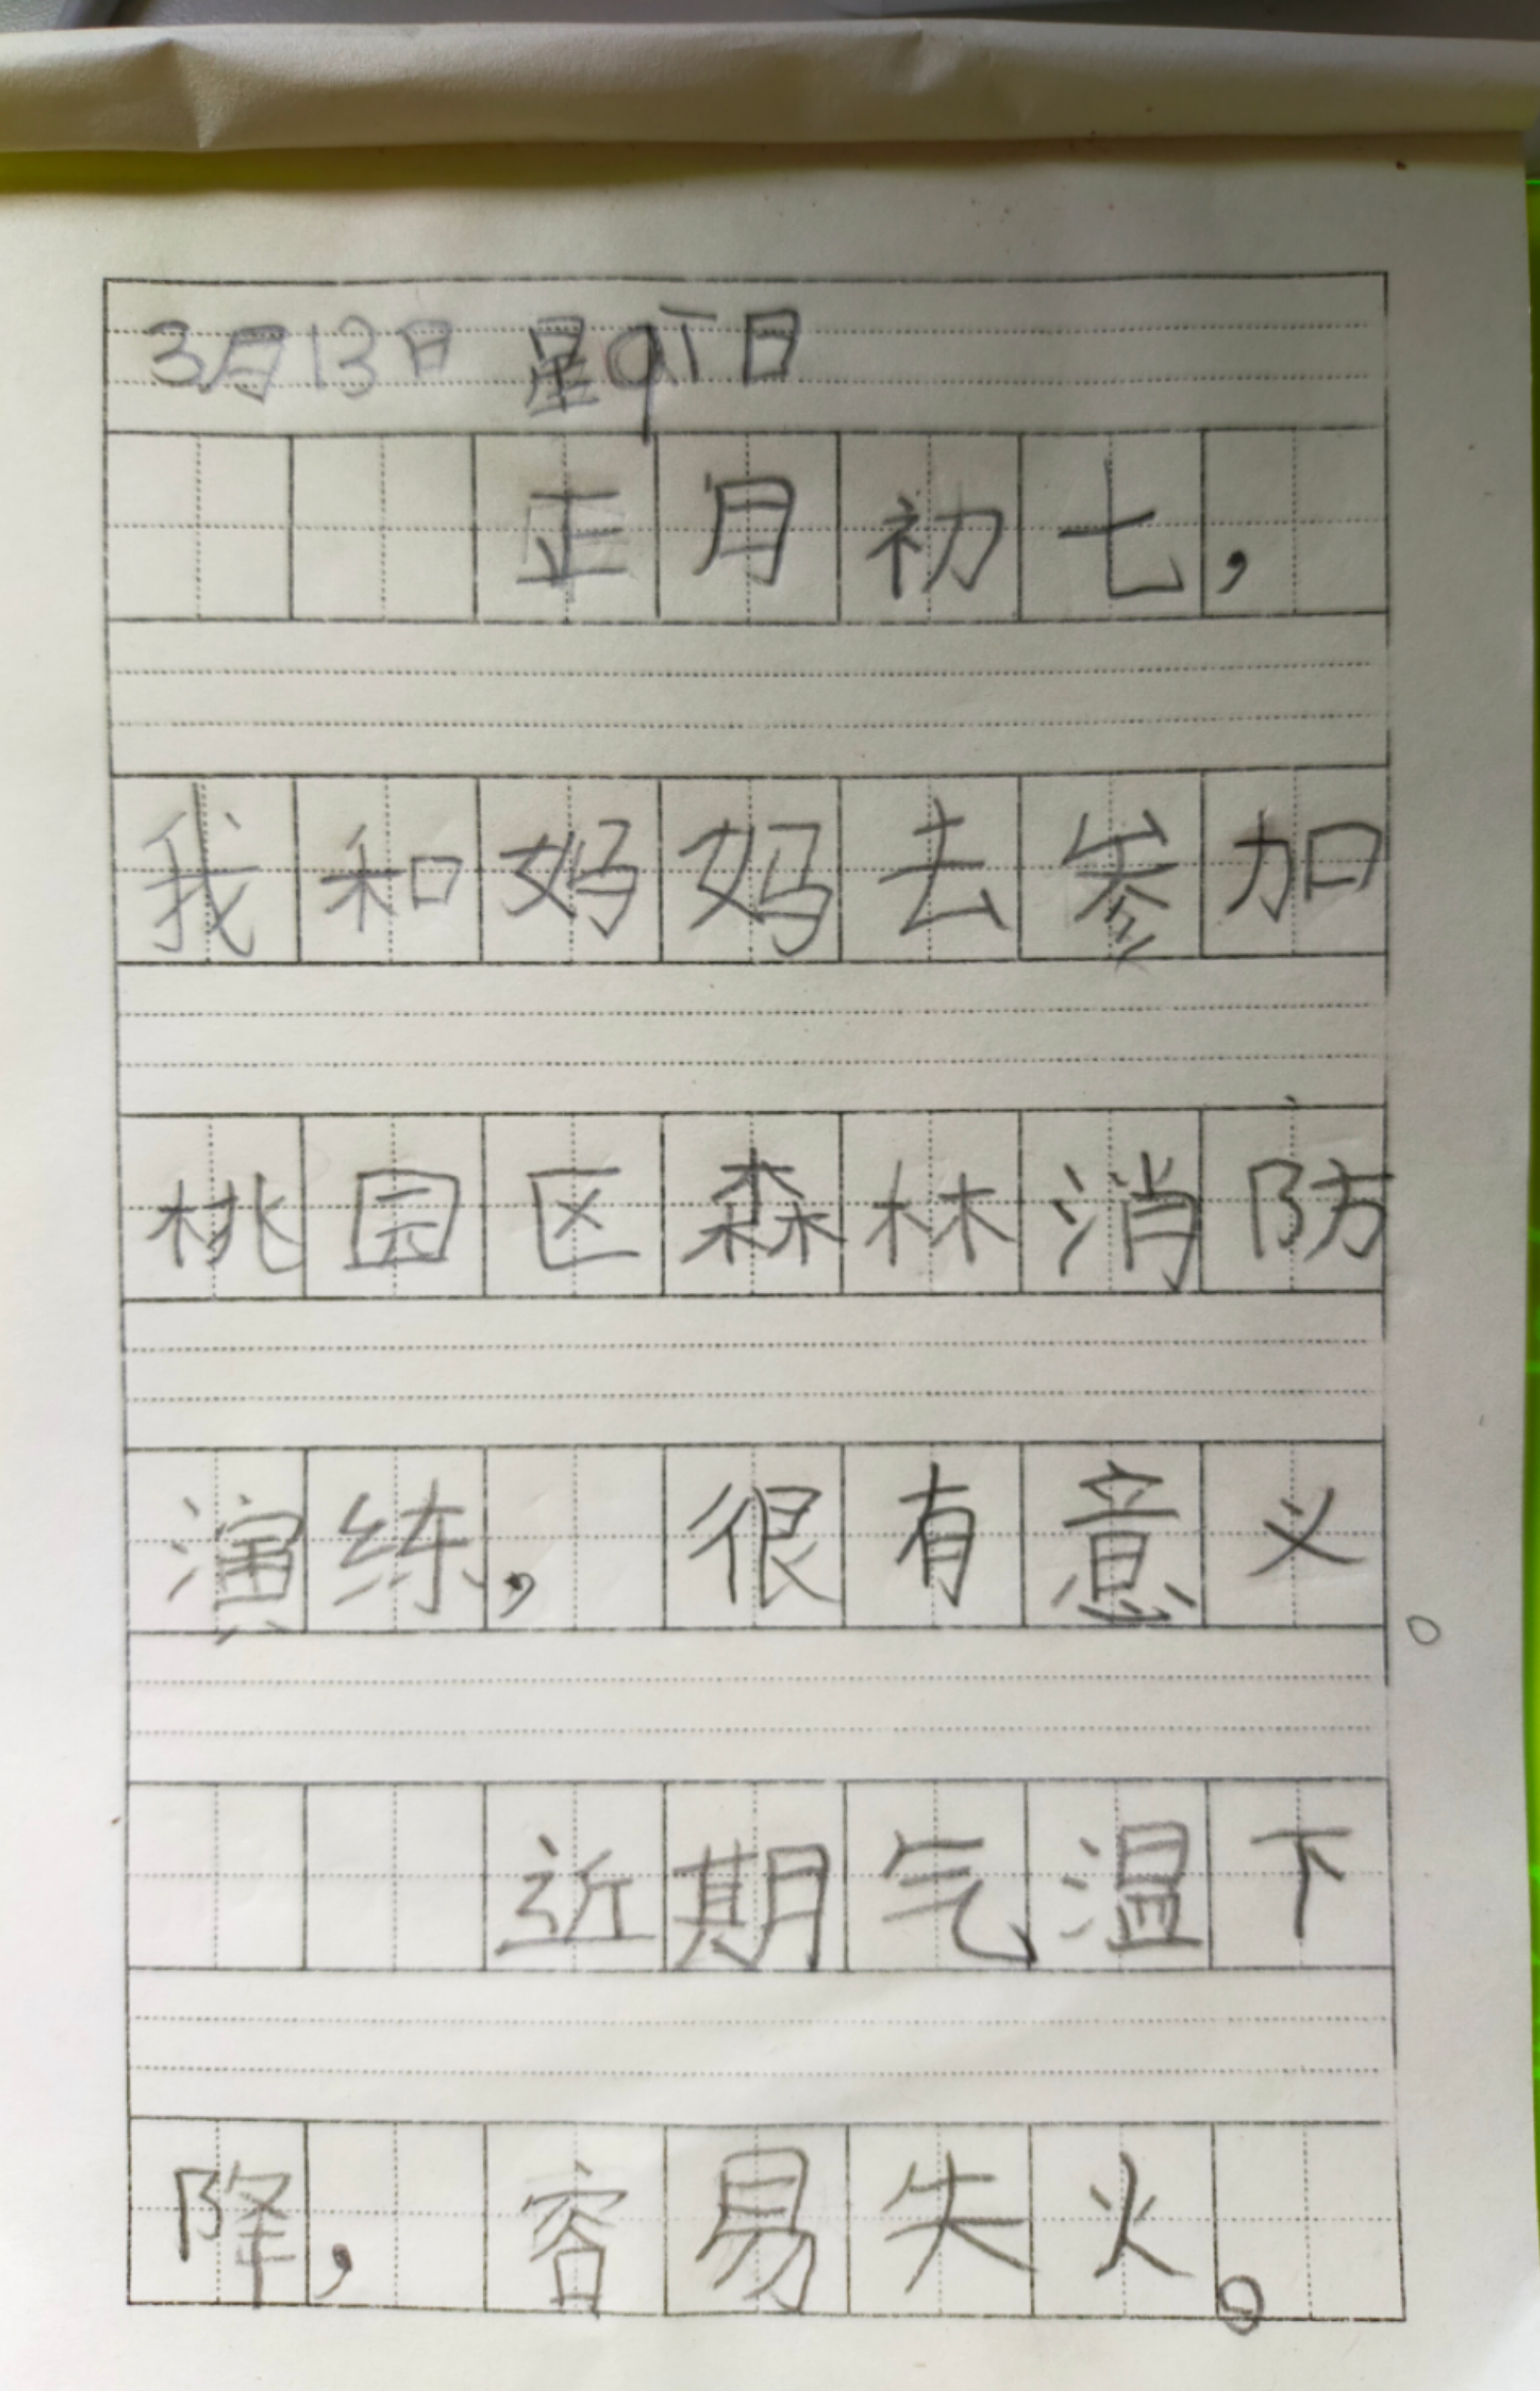 3月13日 星qī日
正月初七，
我和妈妈去参加
桃园区森林消防
演练，很有意义。
近期气温下
降，容易失火。